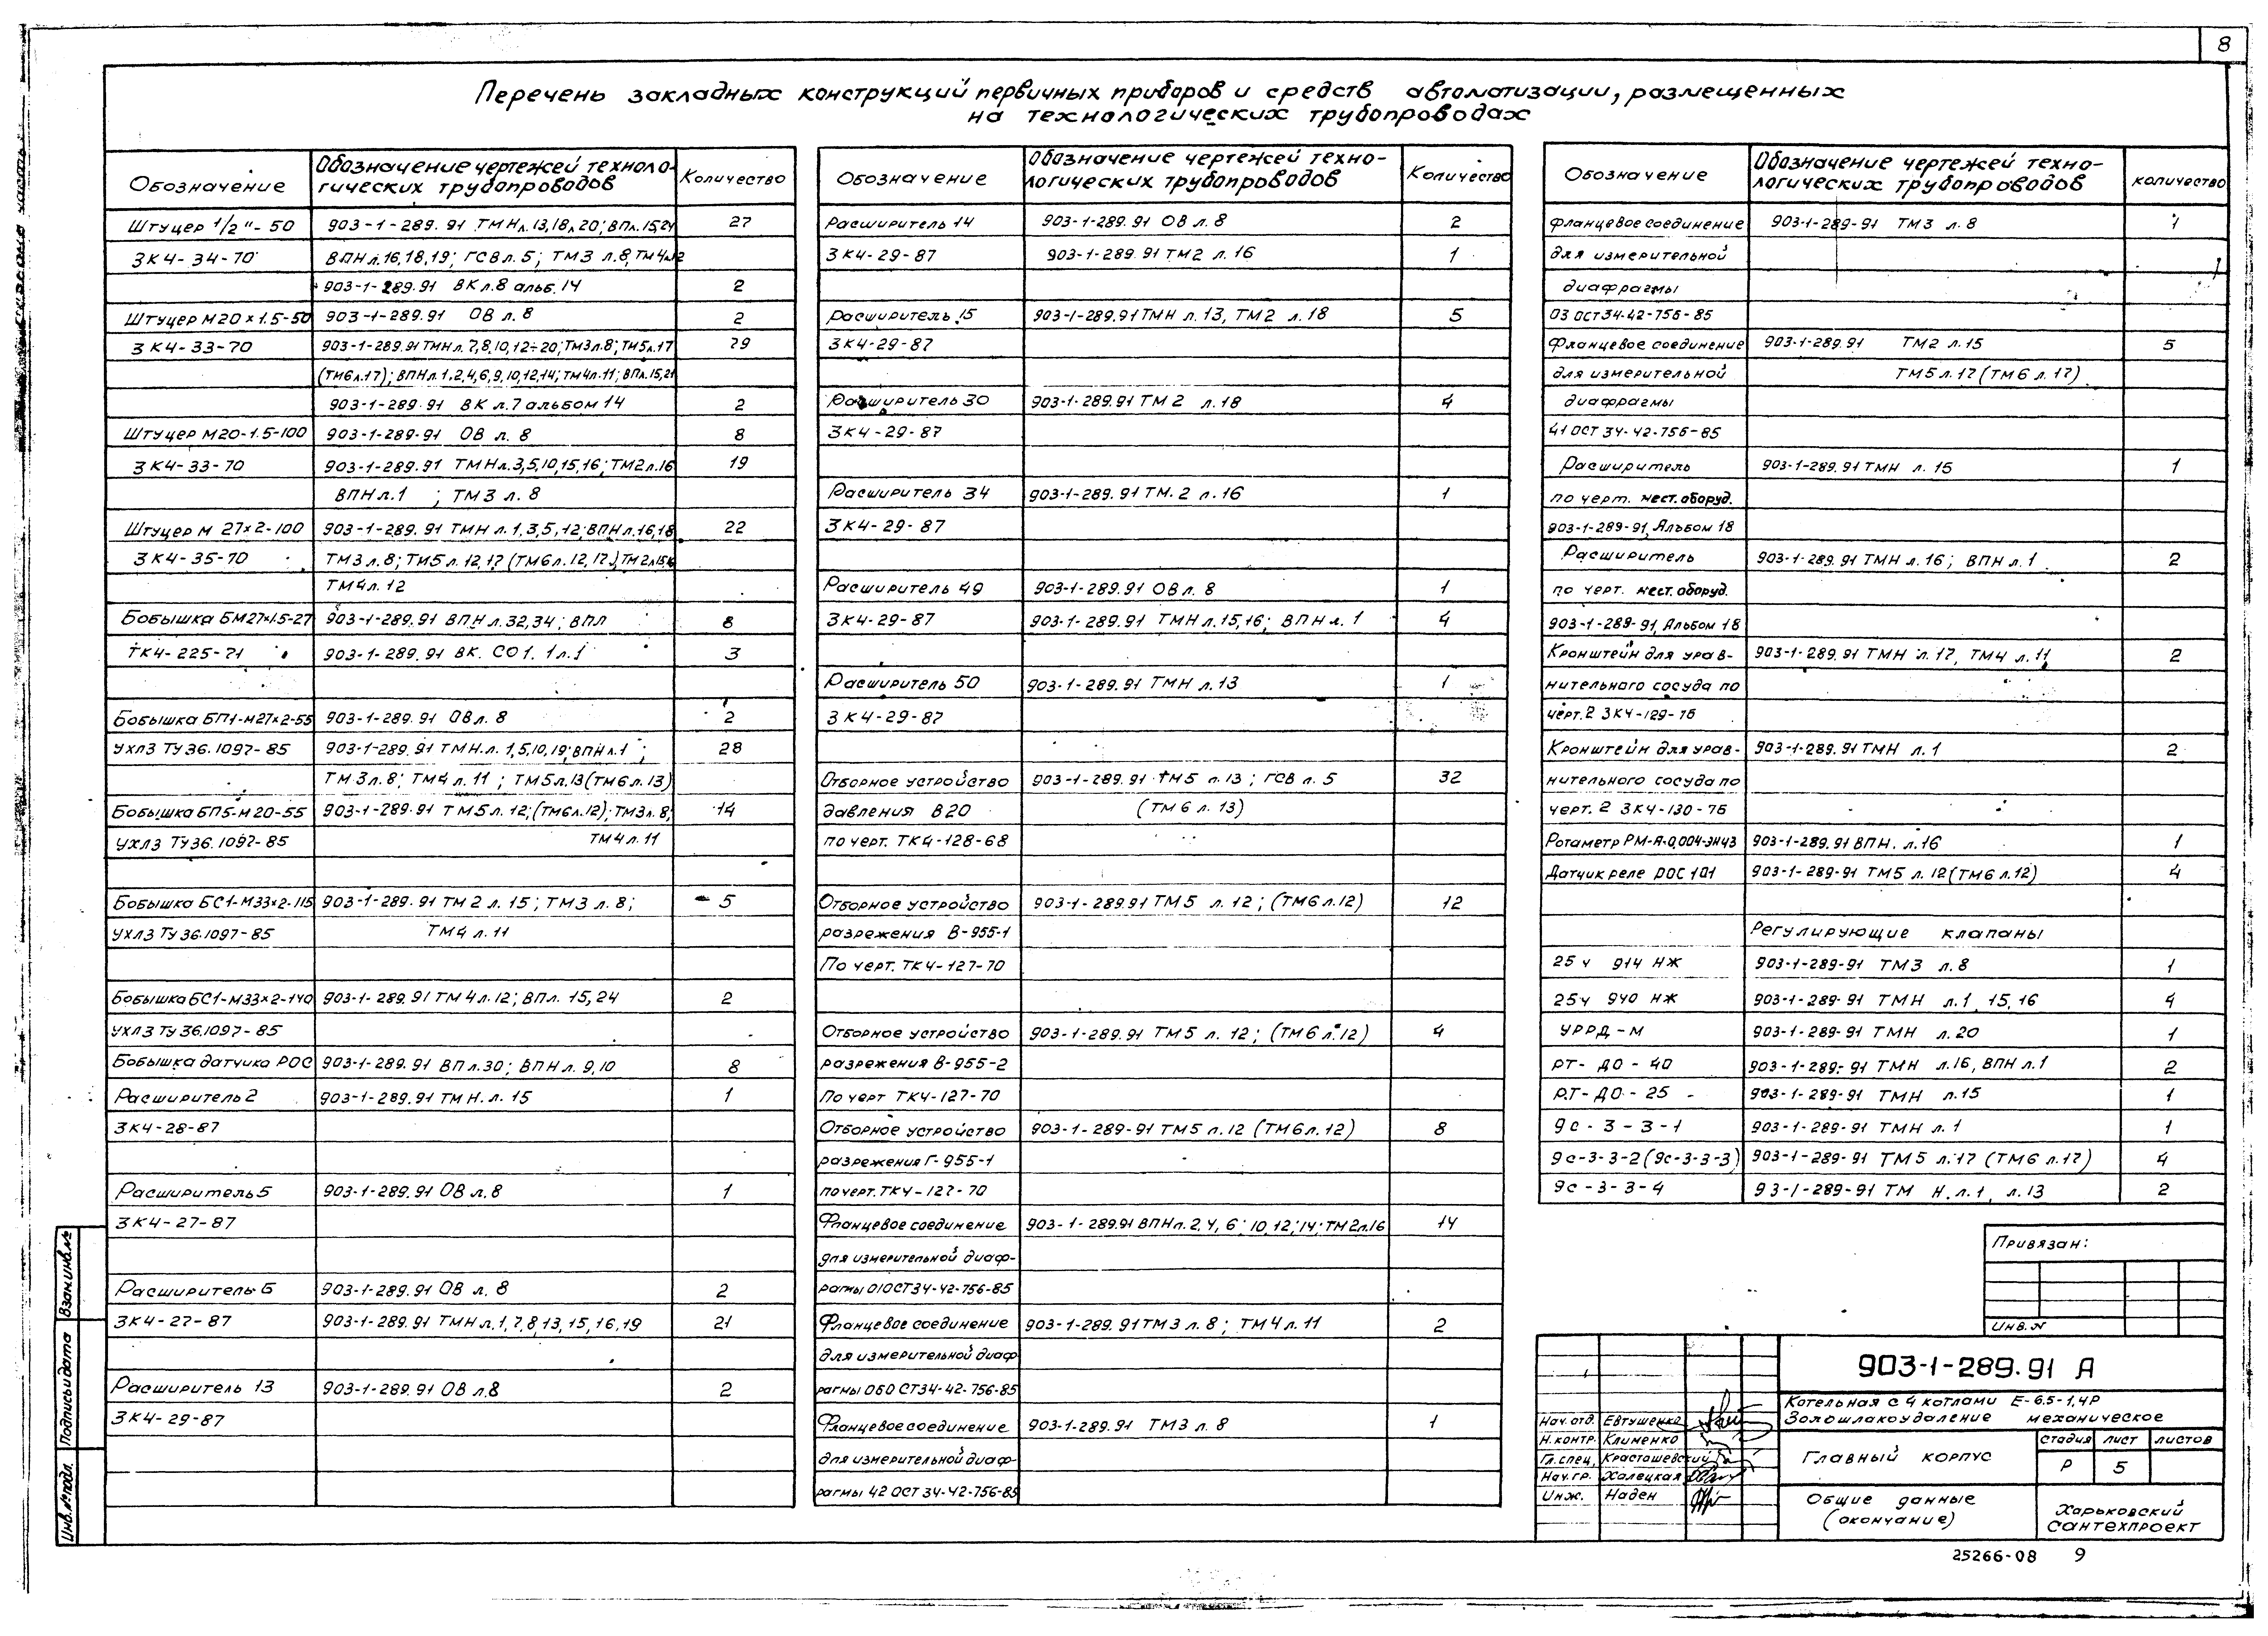 8
Перечень закладных конструкций первичных приборов и средств автоматизации, размещенных
на технологических трубопроводах
Обозначение
Обозначение чертежей техноло-
гических трубопроводов
Количество
Штуцер 1/2"-50 903-1-289.91 ТМН л.13,18л20; ВПл.15,24 27
ЗК4-34-70 ВПНл.16,18,19; ГСВл.5; ТМ3 л.8, ТМ4л12
903-1-289.91 ВКл.8 альб.14 2
Штуцер М20×1.5-50 903-1-289.91 ОВ л.8 2
ЗК4-33-70 903-1-289.91 ТМН л.7,8,10,12÷20; ТМ3л.8; ТМ5л.17 79
(ТМ6л.17); ВПНл.1,2,4,6,9,10,12,14; ТМ4л.11; ВПл.15,21
903-1-289.91 ВК л.7 альбом 14 2
Штуцер М20-1.5-100 903-1-289-91 ОВ л.8 8
ЗК4-33-70 903-1-289.91 ТМНл.3,5,10,15,16; ТМ2л.16 19
ВПНл.1 ; ТМ3 л.8
Штуцер М 27×2-100 903-1-289.91 ТМН л.1,3,5,12; ВПН л.16,18 22
ЗК4-35-70 ТМ3 л.8; ТМ5 л.12,17 (ТМ6л.12,17) ТМ2л15,16
ТМ4л.12
Бобышка БМ27×1.5-27 903-1-289.91 ВПН л.32,34; ВПЛ 8
ТК4-225-71 903-1-289.91 ВК. СО1. 1л.1 3
Бобышка БП1-М27×2-55 903-1-289.91 ОВл.8 2
УХЛ3 ТУ36.1097-85 903-1-289.91 ТМН.л.1,5,10,19; ВПНл.1 ; 28
ТМ3л.8; ТМ4 л.11 ; ТМ5л.13(ТМ6л.13)
Бобышка БП5-М20-55 903-1-289.91 ТМ5л.12; (ТМ6л.12); ТМ3л.8; 14
УХЛ3 ТУ36.1097-85 ТМ4л.11
Бобышка БС1-М33×2-115 903-1-289.91 ТМ2 л.15; ТМ3 л.8; 5
УХЛ3 ТУ36.1097-85 ТМ4 л.11
Бобышка БС1-М33×2-140 903-1-289.91 ТМ4л.12; ВПл.15,24 2
УХЛ3 ТУ36.1097-85
Бобышка датчика РОС 903-1-289.91 ВПл.30; ВПНл.9,10 8
Расширитель 2 903-1-289.91 ТМН.л.15 1
ЗК4-28-87
Расширитель 5 903-1-289.91 ОВ л.8 1
ЗК4-27-87
Расширитель 6 903-1-289.91 ОВ л.8 2
ЗК4-27-87 903-1-289.91 ТМНл.1,7,8,13,15,16,19 21
Расширитель 13 903-1-289.91 ОВ л.8 2
ЗК4-29-87
Обозначение
Обозначение чертежей техно-
логических трубопроводов
Количество
Расширитель 14 903-1-289.91 ОВ л.8 2
ЗК4-29-87 903-1-289.91 ТМ2 л.16 1
Расширитель 15 903-1-289.91 ТМН л.13, ТМ2 л.18 5
ЗК4-29-87
Расширитель 30 903-1-289.91 ТМ2 л.18 4
ЗК4-29-87
Расширитель 34 903-1-289.91 ТМ.2 л.16 1
ЗК4-29-87
Расширитель 49 903-1-289.91 ОВл.8 1
ЗК4-29-87 903-1-289.91 ТМНл.15,16; ВПНл.1 4
Расширитель 50 903-1-289.91 ТМН л.13 1
ЗК4-29-87
Отборное устройство 903-1-289.91 ТМ5 л.13; ГСВ л.5 32
давления В20 (ТМ6 л.13)
по черт. ТК4-128-68
Отборное устройство 903-1-289.91 ТМ5 л.12; (ТМ6л.12) 12
разрежения В-955-1
По черт. ТК4-127-70
Отборное устройство 903-1-289.91 ТМ5 л.12; (ТМ6л.12) 4
разрежения В-955-2
По черт ТК4-127-70
Отборное устройство 903-1-289-91 ТМ5 л.12 (ТМ6л.12) 8
разрежения Г-955-1
по черт. ТК4-127-70
Фланцевое соединение 903-1-289.91 ВПНл.2,4,6;10,12;14; ТМ2л.16 14
для измерительной диаф-
рагмы 01ОСТ34-42-756-85
Фланцевое соединение 903-1-289.91 ТМ3 л.8; ТМ4л.11 2
для измерительной диаф
рагмы 06 ОСТ34-42-756-85
Фланцевое соединение 903-1-289.91 ТМ3 л.8 1
для измерительной диаф-
рагмы 42 ОСТ34-42-756-85
Обозначение
Обозначение чертежей техно-
логических трубопроводов
количество
Фланцевое соединение 903-1-289-91 ТМ3 л.8 1
для измерительной
диафрагмы
03 ОСТ34-42-756-85
Фланцевое соединение 903-1-289.91 ТМ2 л.15 5
для измерительной ТМ5л.17(ТМ6 л.17)
диафрагмы
41 ОСТ 34-42-756-85
Расширитель 903-1-289.91 ТМН л.15 1
по черт. нест.оборуд.
903-1-289-91, Альбом 18
Расширитель 903-1-289.91 ТМН л.16; ВПН л.1 2
по черт. нест.оборуд.
903-1-289-91, Альбом 18
Кронштейн для урав- 903-1-289.91 ТМН л.17, ТМ4 л.11 2
нительного сосуда по
черт.2 ЗК4-129-76
Кронштейн для урав- 903-1-289.91 ТМН л.1 2
нительного сосуда по
черт.2 ЗК4-130-76
Ротаметр РМ-А-0,004-ЖУЗ 903-1-289.91 ВПН. л.16 1
Датчик реле РОС 101 903-1-289-91 ТМ5 л.12(ТМ6 л.12) 4
Регулирующие клапаны
25ч 914 НЖ 903-1-289-91 ТМ3 л.8 1
25ч 940 НЖ 903-1-289-91 ТМН л.1,15,16 4
УРРД-М 903-1-289-91 ТМН л.20 1
РТ-ДО-40 903-1-289-91 ТМН л.16, ВПН л.1 2
РТ-ДО-25 903-1-289-91 ТМН л.15 1
9с-3-3-1 903-1-289-91 ТМН л.1 1
9с-3-3-2(9с-3-3-3) 903-1-289-91 ТМ5 л.17 (ТМ6 л.17) 4
9с-3-3-4 9 3-1-289-91 ТМ Н.л.1, л.13 2
Привязан:
Инв.N
903-1-289.91 А
Котельная с 4 котлами Е-6.5-1,4Р
Золошлакоудаление механическое
Нач.отд. Евтушенко
Н.контр. Клименко
Гл.спец. Красташевский
Нач.гр. Халецкая
Инж. Наден
Главный корпус
стадия лист листов
Р 5
Общие данные
(окончание)
Харьковский
сантехпроект
25266-08 9
Инв.№подл. Подпись и дата Взам.инв.№